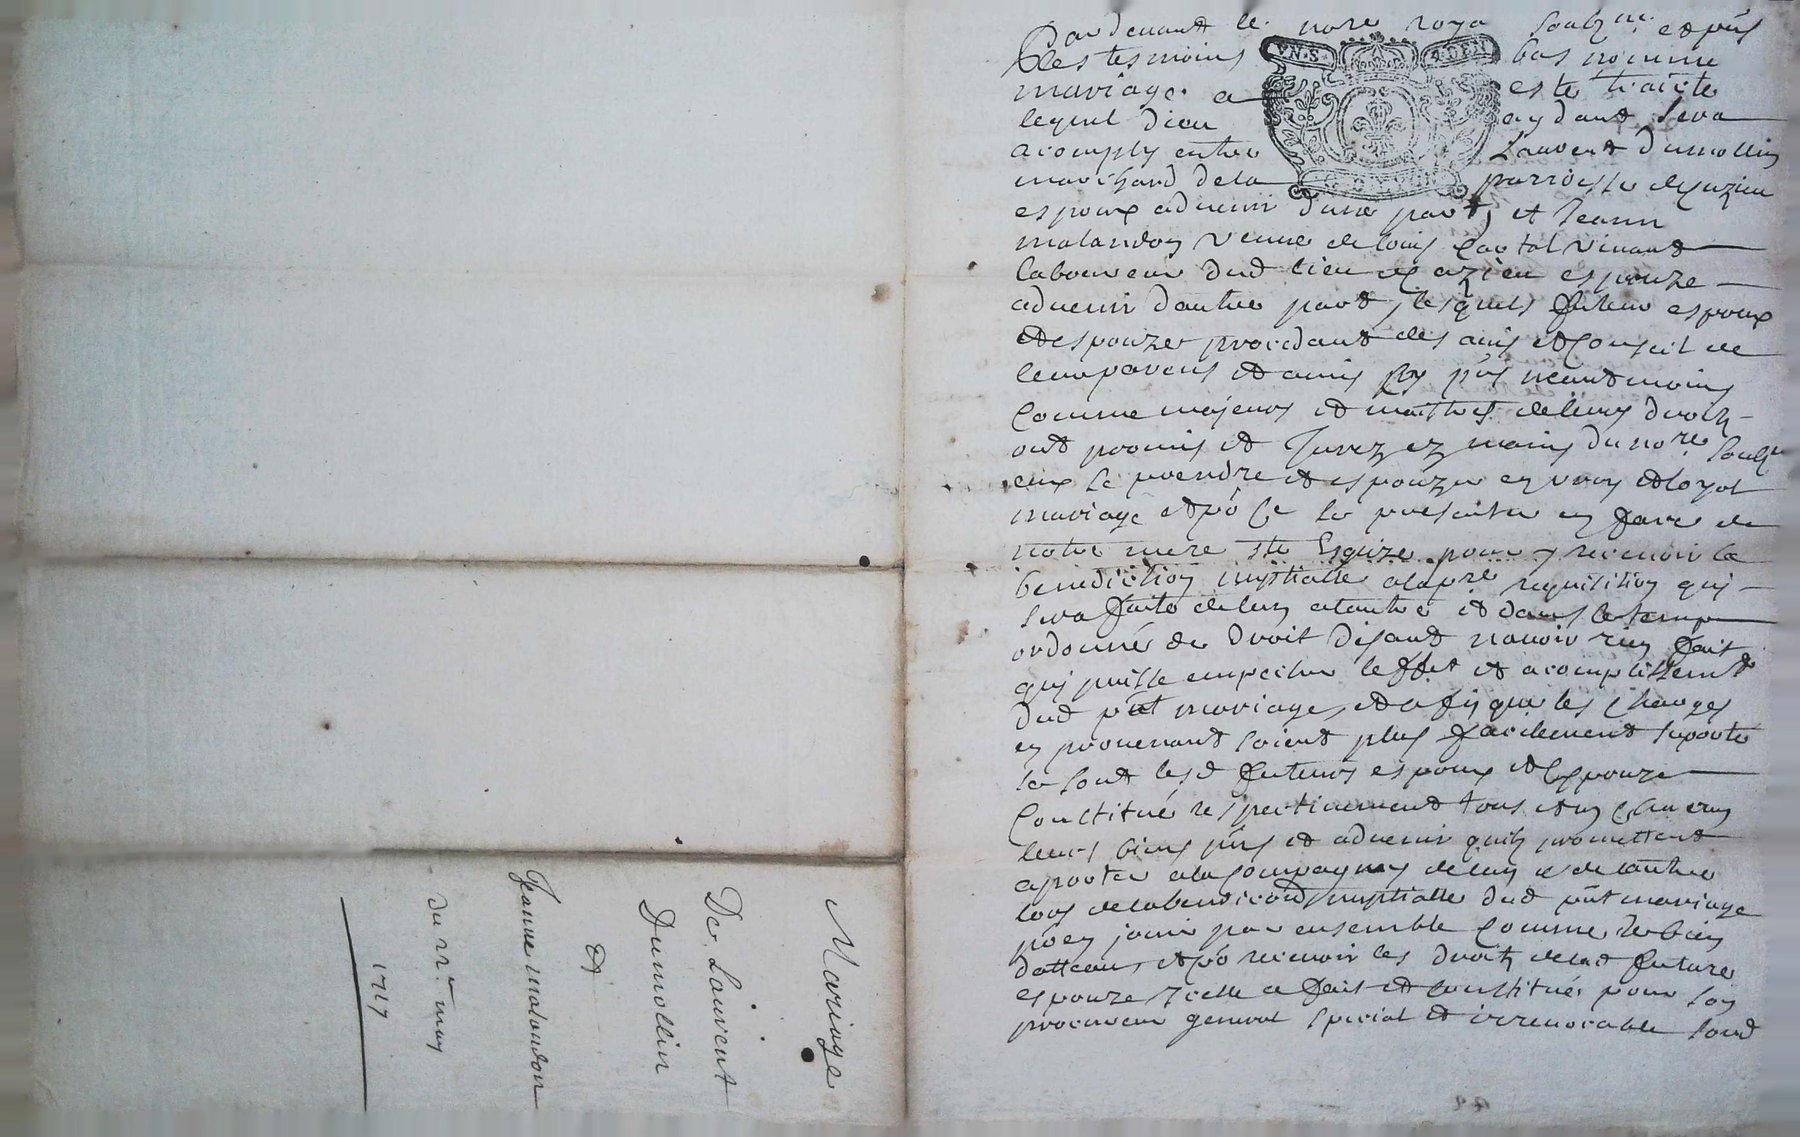 Pardevant le nore roya soubzne et pñs
les tesmoins bas nomme
mariage a este traicte
lequel dieu aydant sera
acomply entre Laurent Dumollin
marchand dela parroisse
espoux advenir dune part, et Jeann
malandon veufve de louis vivant
laboureur dud lieu espouze
advenir dautre part, lesquels futur espoux
et espouze procedant des avis et conseil de
leur parens et amis pñs neantmoins
comme majeurs et maitres de leurs droitz
ont promis et Jurez ez mains du nore soubzne
eux se prendre et espouzer en vray et loyal
mariage et po ce se presenter en face de
notre mere ste Esglize pour y recevoir la
benediction nuptialle alapre requisition quy
sera faite de lun alautre et dans le temps
ordonné de droit disant navoir rien fait
quy puisse empecher leffet et acomplissemt
dud pñt mariage, et afin que les charges
en provenant soient plus facilement suporte
se sont lesd futurs espoux et espouze
Constitué respectivement tous et un chacun
leurs biens pñs et advenir quilz promettent
aporter ala compagney de lun et de lautre
lors dela benediction nuptialle dud pñt mariage
po en jouir par ensemble comme de bien
dotteaux, et po recevoir les droitz delad future
espouze Icelle a fait et constitué pour son
procureur general special et irrevocable lond
Mariage
De Laurent
Dumollin
et
Jeanne malandon
du 22e may
1717